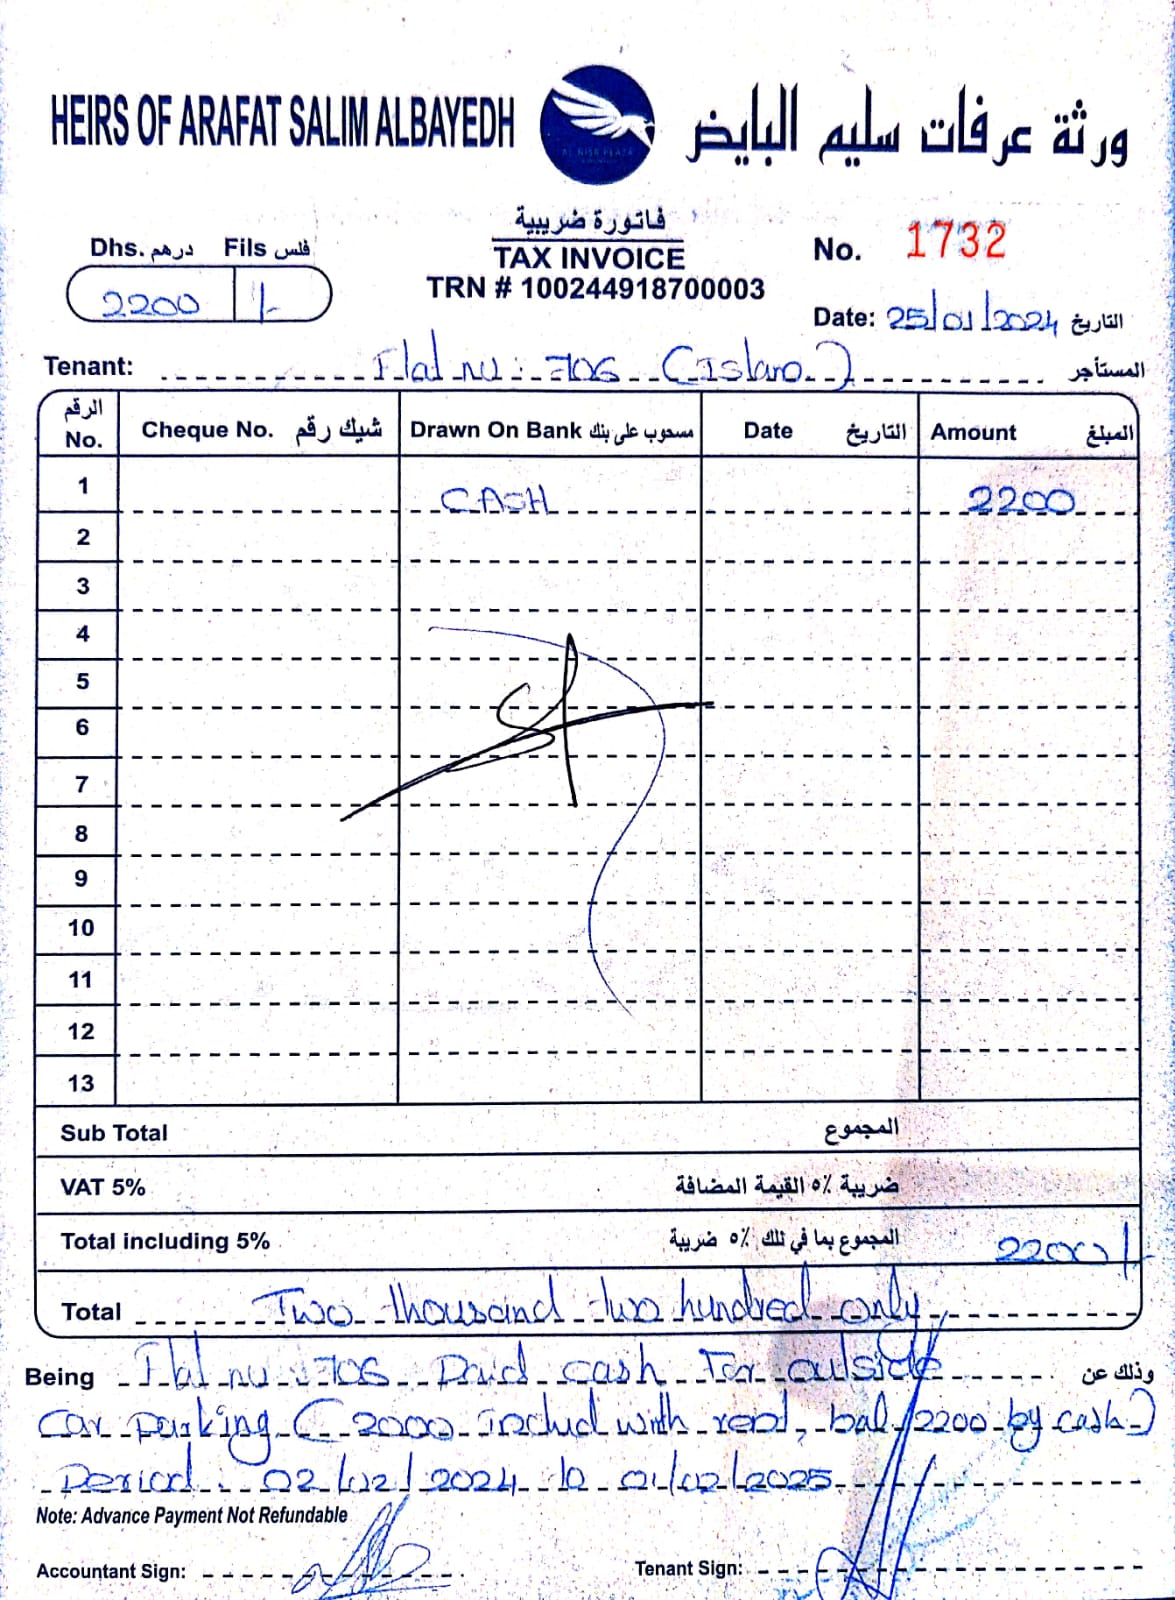 HEIRS OF ARAFAT SALIM ALBAYEDH
ورثة عرفات سليم البايض
AL NISR PLAZA
فاتورة ضريبية
TAX INVOICE
TRN # 100244918700003
Dhs. درهم Fils فلس
2200 /-
No. 1732
Date: 25/01/2024 التاريخ
Tenant: Flat no : 706 المستأجر
الرقم No. Cheque No. شيك رقم Drawn On Bank مسحوب على بنك Date التاريخ Amount المبلغ
1 CASH 2200
2
3
4
5
6
7
8
9
10
11
12
13
Sub Total المجموع
VAT 5% ضريبة ٥٪ القيمة المضافة
Total including 5% المجموع بما في تلك ٥٪ ضريبة 2200/-
Total Two thousand two hundred only
Being Flat no : 706 Paid cash For outside وذلك عن
Car parking ( 2000 includ with rent, bal 2200 by cash )
Period : 02/02/2024 to 01/02/2025
Note: Advance Payment Not Refundable
Accountant Sign:
Tenant Sign: